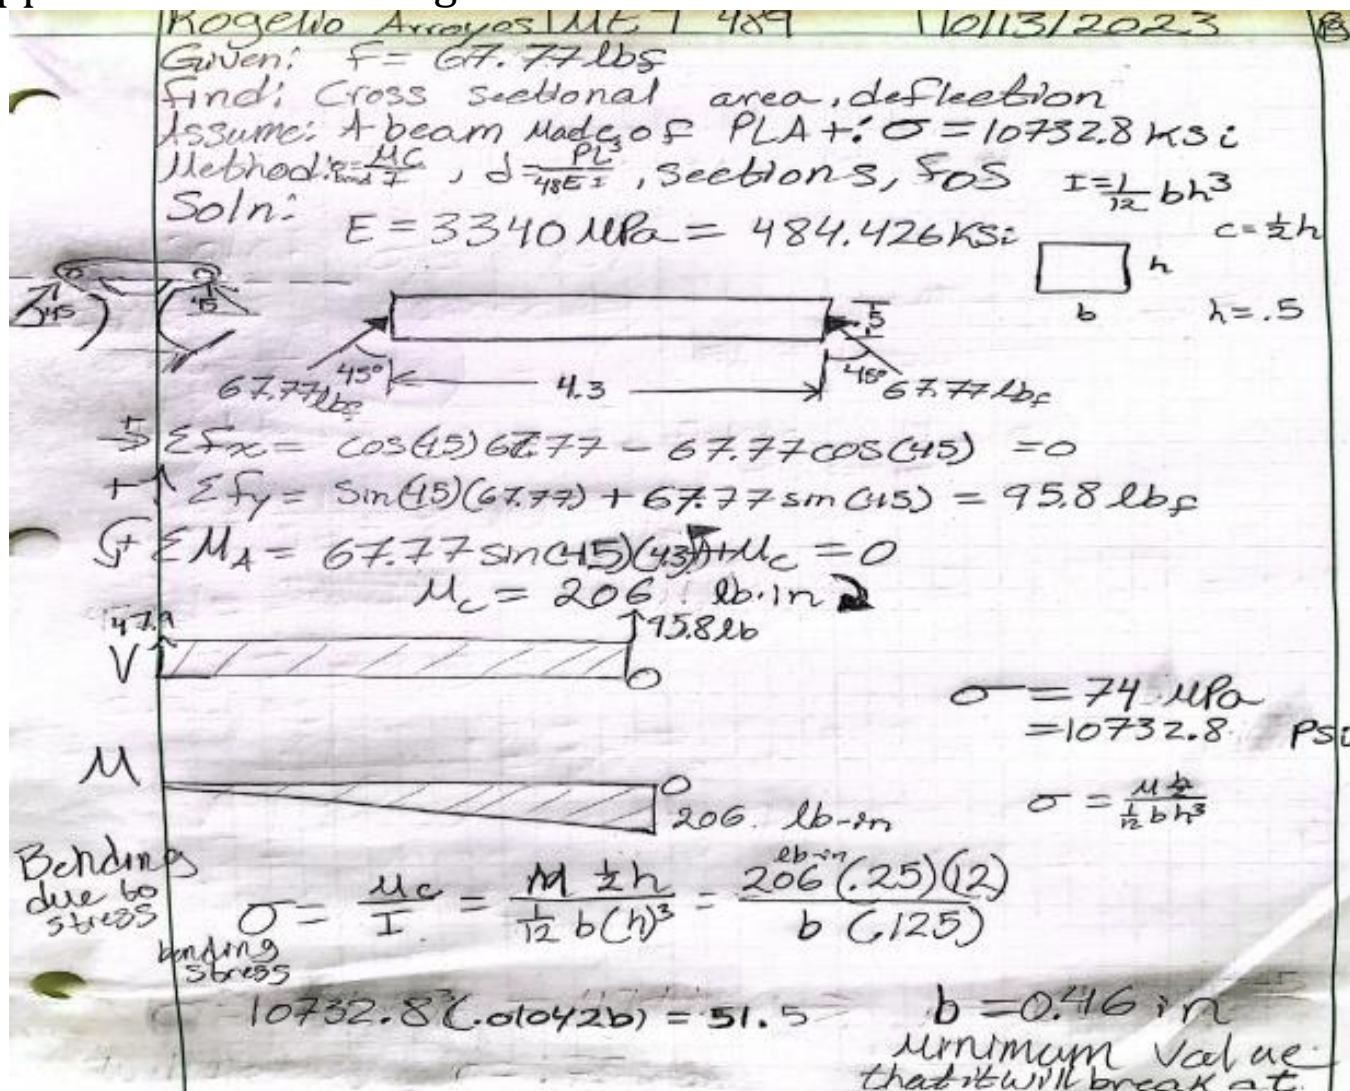 Rogelio Arroyos | MET 489 | 10/13/2023
Given: F= 67.77 lbf
Find: Cross sectional area, deflection
Assume: A beam Made of PLA+: σ = 10732.8 Ksi
Method: σ = MC/I , d = PL³/48EI , sections, FOS I = 1/12 bh³
Soln: E = 3340 MPa = 484.426 Ksi c = ½h
h
b h = .5
45 45
.5
67.77 lbf 45° 4.3 45° 67.77 lbf
+→ ΣFx = cos(45)67.77 - 67.77cos(45) = 0
+↑ ΣFy = Sin(45)(67.77) + 67.77 sin(45) = 95.8 lbf
↺+ ΣMA = 67.77 sin(45)(4.3) + Mc = 0
Mc = 206 lb·in
47.9 95.8 lb
V 0
σ = 74 MPa
= 10732.8 PSi
M 0
206 lb-in
σ = M ½ / 1/12 bh³
Bending due to stress
σ bending stress = Mc/I = M ½h / 1/12 b(h)³ = 206 lb-in (.25)(12) / b (.125)
10732.8 (.01042b) = 51.5 b = 0.46 in
Minimum value
that it will break at